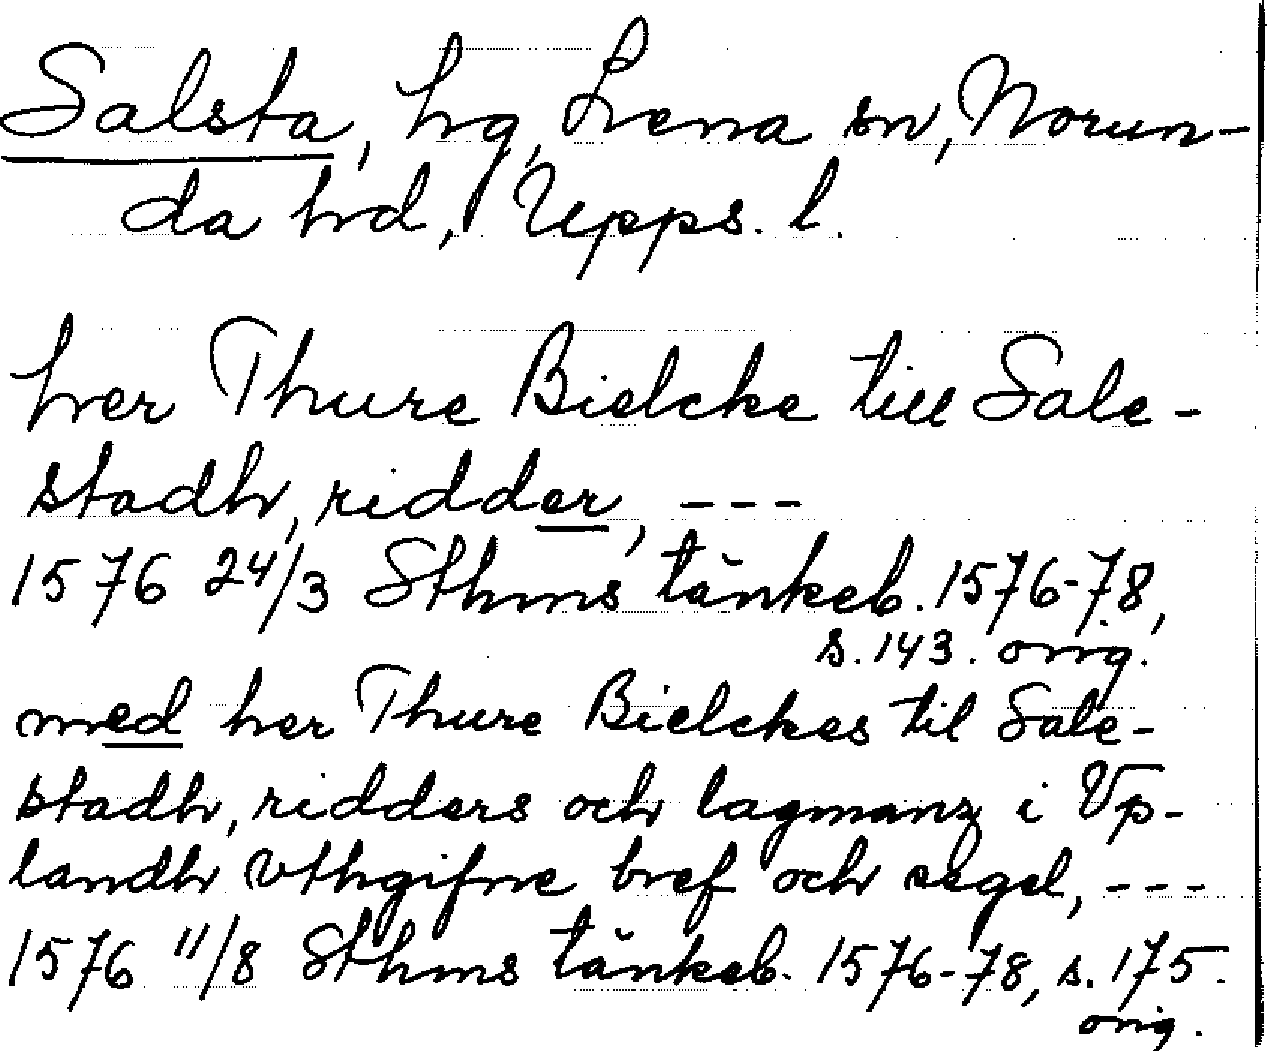 Salsta, hg, Lena sn, Norun-
da hd, Upps. l.
her Thure Bielcke till Sale-
stadh, ridder, ---
1576 24/3 Sthms tänkeb. 1576-78,
s. 143. orig.
med her Thure Bielckes til Sale-
stadh, ridders och lagmanz i Vp-
landh vthgifne bref och segel, ---
1576 11/8 Sthms tänkeb. 1576-78, s. 175.
orig.